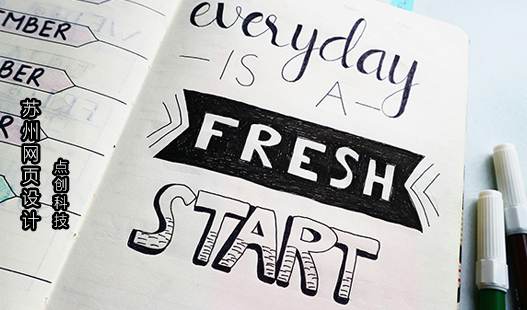 everyday
IS A
FRESH
START
MBER
BER
R
苏州网页设计
点创科技